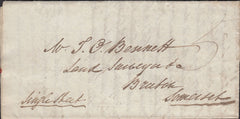 Mr T. O. Bennett
Land Surveyor &c
Bruton
Somerset
Single Sheet